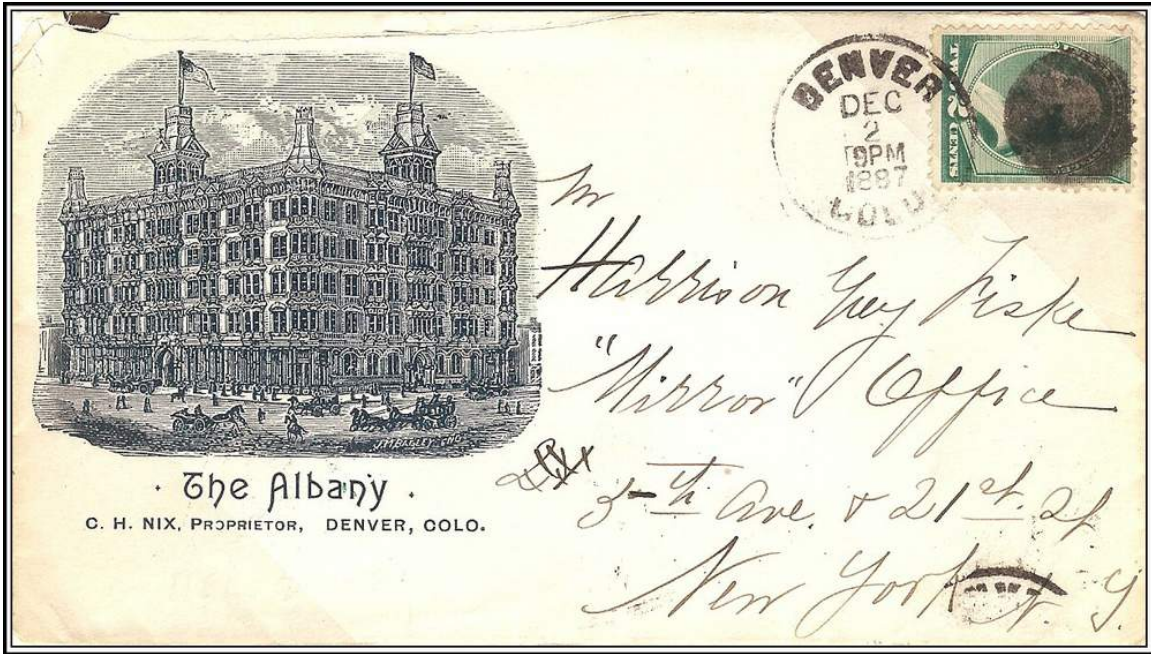 DENVER
DEC
2
9PM
1887
COLO
TWO CENTS
J.M. BAGLEY ENG
The Albany
C. H. NIX, PROPRIETOR, DENVER, COLO.
Mr
Harrison Grey Fiske
"Mirror" Office
5th Ave. & 21st. St
New York N. Y.